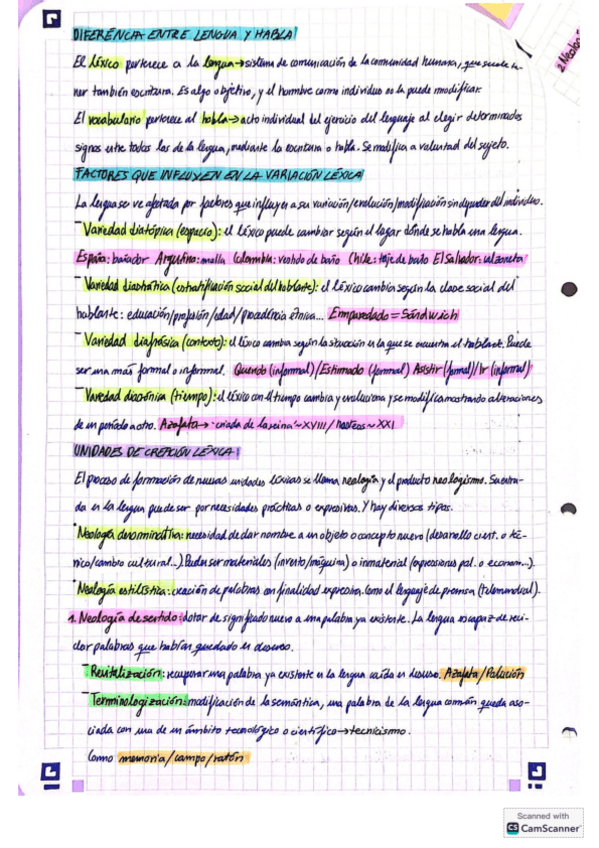 DIFERENCIA ENTRE LENGUA Y HABLA
El léxico pertenece a la lengua→sistema de comunicación de la comunidad humana, que suele te-
ner también escritura. Es algo objetivo, y el hombre como individuo no la puede modificar.
El vocabulario pertenece al habla→acto individual del ejercicio del lenguaje al elegir determinados
signos entre todos los de la lengua, mediante la escritura o habla. Se modifica a voluntad del sujeto.
FACTORES QUE INFLUYEN EN LA VARIACIÓN LÉXICA
La lengua se ve afectada por factores que influyen a su variación/evolución/modificación sin depender del individuo.
- Variedad diatópica (espacio): el léxico puede cambiar según el lugar dónde se habla una lengua.
España: bañador Argentina: malla Colombia: vestido de baño Chile: traje de baño El Salvador: calzoneta
- Variedad diastrática (estratificación social del hablante): el léxico cambia según la clase social del
hablante: educación/profesión/edad/procedencia étnica... Emparedado = Sándwich
- Variedad diafásica (contexto): el léxico cambia según la situación en la que se encuentra el hablante. Puede
ser una más formal o informal. Querido (informal)/Estimado (formal) Asistir (formal)/Ir (informal)
- Variedad diacrónica (tiempo): el léxico con el tiempo cambia y evoluciona y se modifica mostrando alteraciones
de un período a otro. Azafata→ criada de la reina ~XVIII/ ~XXI
UNIDADES DE CREACIÓN LÉXICA
El proceso de formación de nuevas unidades léxicas se llama neología y el producto neologismo. Su entra-
da en la lengua puede ser por necesidades prácticas o expresivas. Y hay diversos tipos.
· Neología denominativa: necesidad de dar nombre a un objeto o concepto nuevo (desarrollo cient. o téc-
nico/cambio cultural...). Pueden ser materiales (invento/máquina) o inmaterial (expresiones pol. o econom...).
· Neología estilística: creación de palabras con finalidad expresiva. Como el lenguaje de prensa (telemundial).
1. Neología de sentido: dotar de significado nuevo a una palabra ya existente. La lengua es capaz de reci-
clar palabras que habían quedado en desuso.
- Revitalización: recuperar una palabra ya existente en la lengua caída en desuso. Azafata/Polución
- Terminologización: modificación de la semántica, una palabra de la lengua común queda aso-
ciada con una de un ámbito tecnológico o científico→tecnicismo.
Como memoria/campo/ratón
Scanned with
CS CamScanner